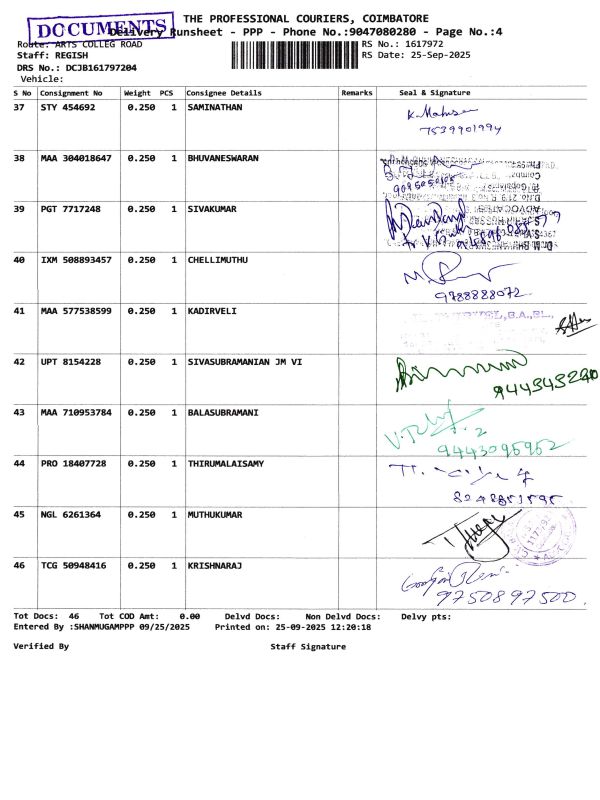 THE PROFESSIONAL COURIERS, COIMBATORE
DOCUMENTS
Delivery Runsheet - PPP - Phone No.:9047080280 - Page No.:4
Route: ARTS COLLEG ROAD RS No.: 1617972
Staff: REGISH RS Date: 25-Sep-2025
DRS No.: DCJB161797204
Vehicle:
S No Consignment No Weight PCS Consignee Details Remarks Seal & Signature
37 STY 454692 0.250 1 SAMINATHAN
7539901994
38 MAA 304018647 0.250 1 BHUVANESWARAN
39 PGT 7717248 0.250 1 SIVAKUMAR
40 IXM 508893457 0.250 1 CHELLIMUTHU
9788828072
41 MAA 577538599 0.250 1 KADIRVELI
42 UPT 8154228 0.250 1 SIVASUBRAMANIAN JM VI
43 MAA 710953784 0.250 1 BALASUBRAMANI
9443095952
44 PRO 18407728 0.250 1 THIRUMALAISAMY
45 NGL 6261364 0.250 1 MUTHUKUMAR
46 TCG 50948416 0.250 1 KRISHNARAJ
9750897500.
Tot Docs: 46 Tot COD Amt: 0.00 Delvd Docs: Non Delvd Docs: Delvy pts:
Entered By :SHANMUGAMPPP 09/25/2025 Printed on: 25-09-2025 12:20:18
Verified By Staff Signature